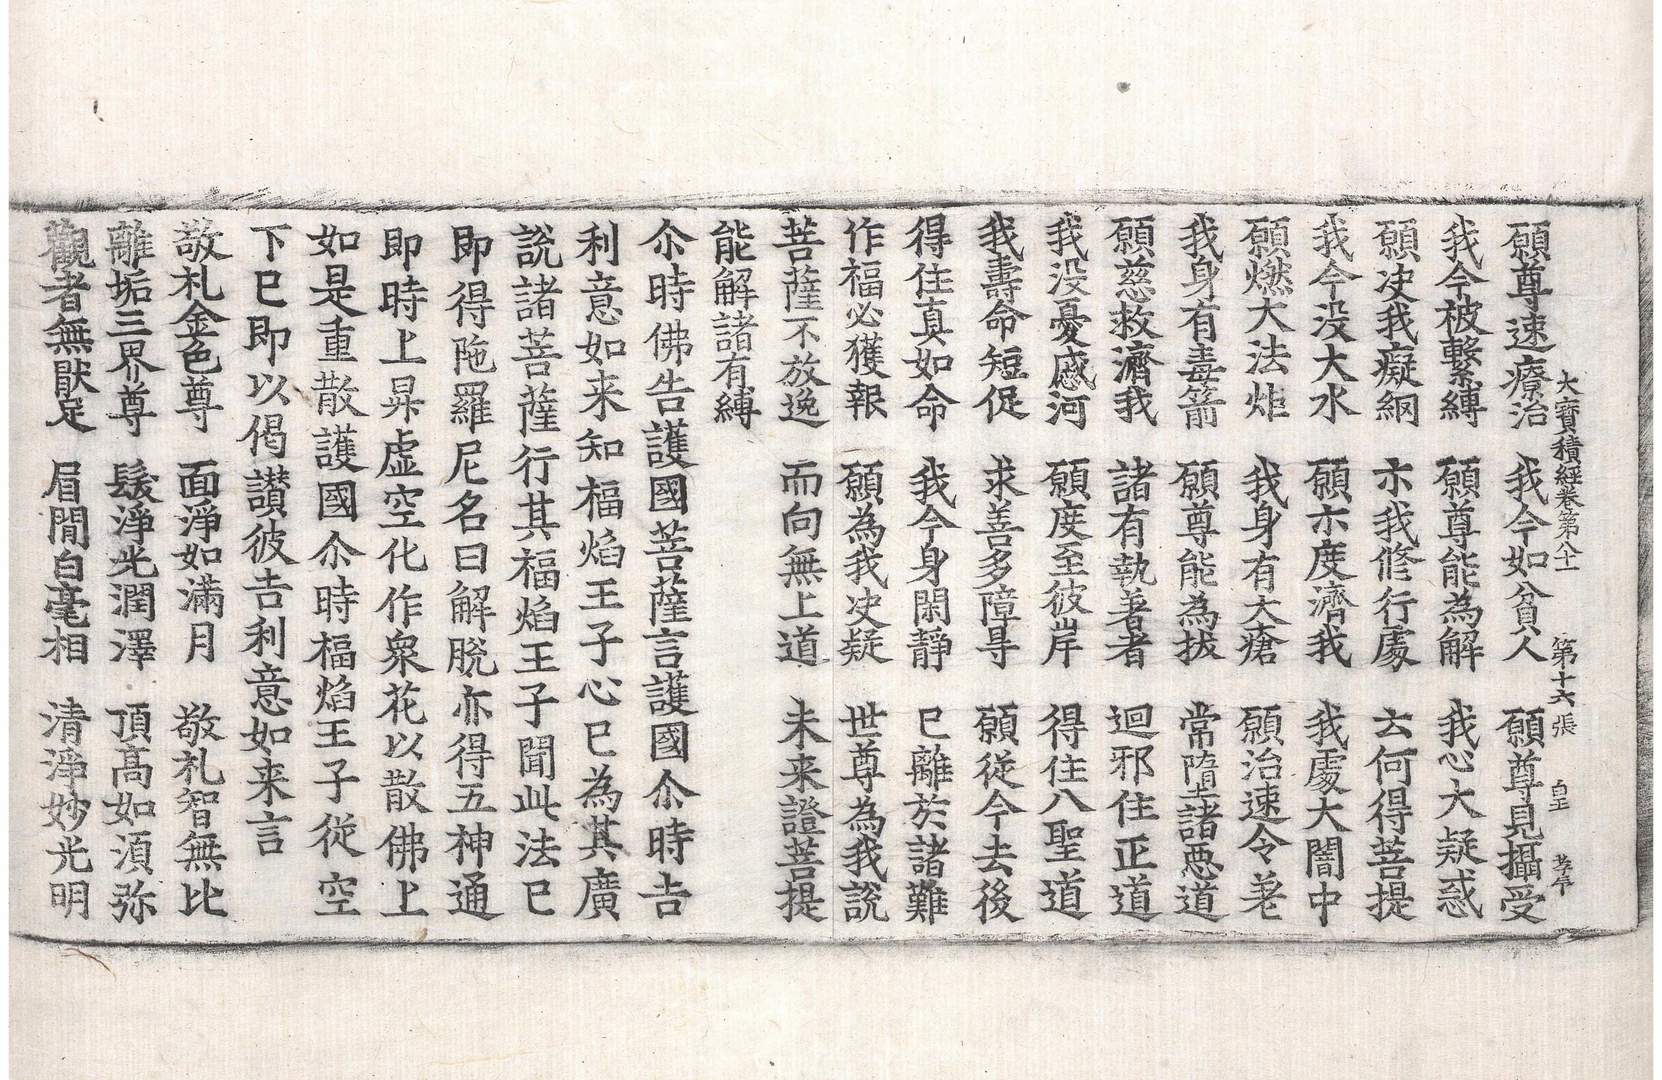 大寶積經卷第八十一　第十六張　白王　孝早
願尊速療治　我今如貧人　願尊見攝受
我今被繫縛　願尊能為解　我心大疑惑
願决我癡網　示我修行處　云何得菩提
我今没大水　願示度濟我　我處大闇中
願燃大法炬　我身有大瘡　願治速令差
我身有毒箭　願尊能為拔　常墮諸惡道
願慈救濟我　諸有執著者　迴邪住正道
我没憂慼河　願度至彼岸　得住八聖道
我壽命短促　求善多障㝵　願従今去後
得住真如命　我今身閑静　已離於諸難
作福必獲報　願為我决疑　世尊為我說
菩薩不放逸　而向無上道　未来證菩提
能解諸有縛
尒時佛告護國菩薩言護國尒時吉
利意如来知福焰王子心已為其廣
說諸菩薩行其福焰王子聞此法已
即得陁羅尼名曰解脱亦得五神通
即時上昇虚空化作衆花以散佛上
如是重散護國尒時福焰王子従空
下已即以偈讃彼吉利意如来言
敬礼金色尊　面淨如滿月　敬礼智無比
離垢三界尊　髮淨光潤澤　頂髙如湏弥
觀者無猒足　眉間白毫相　清淨妙光明